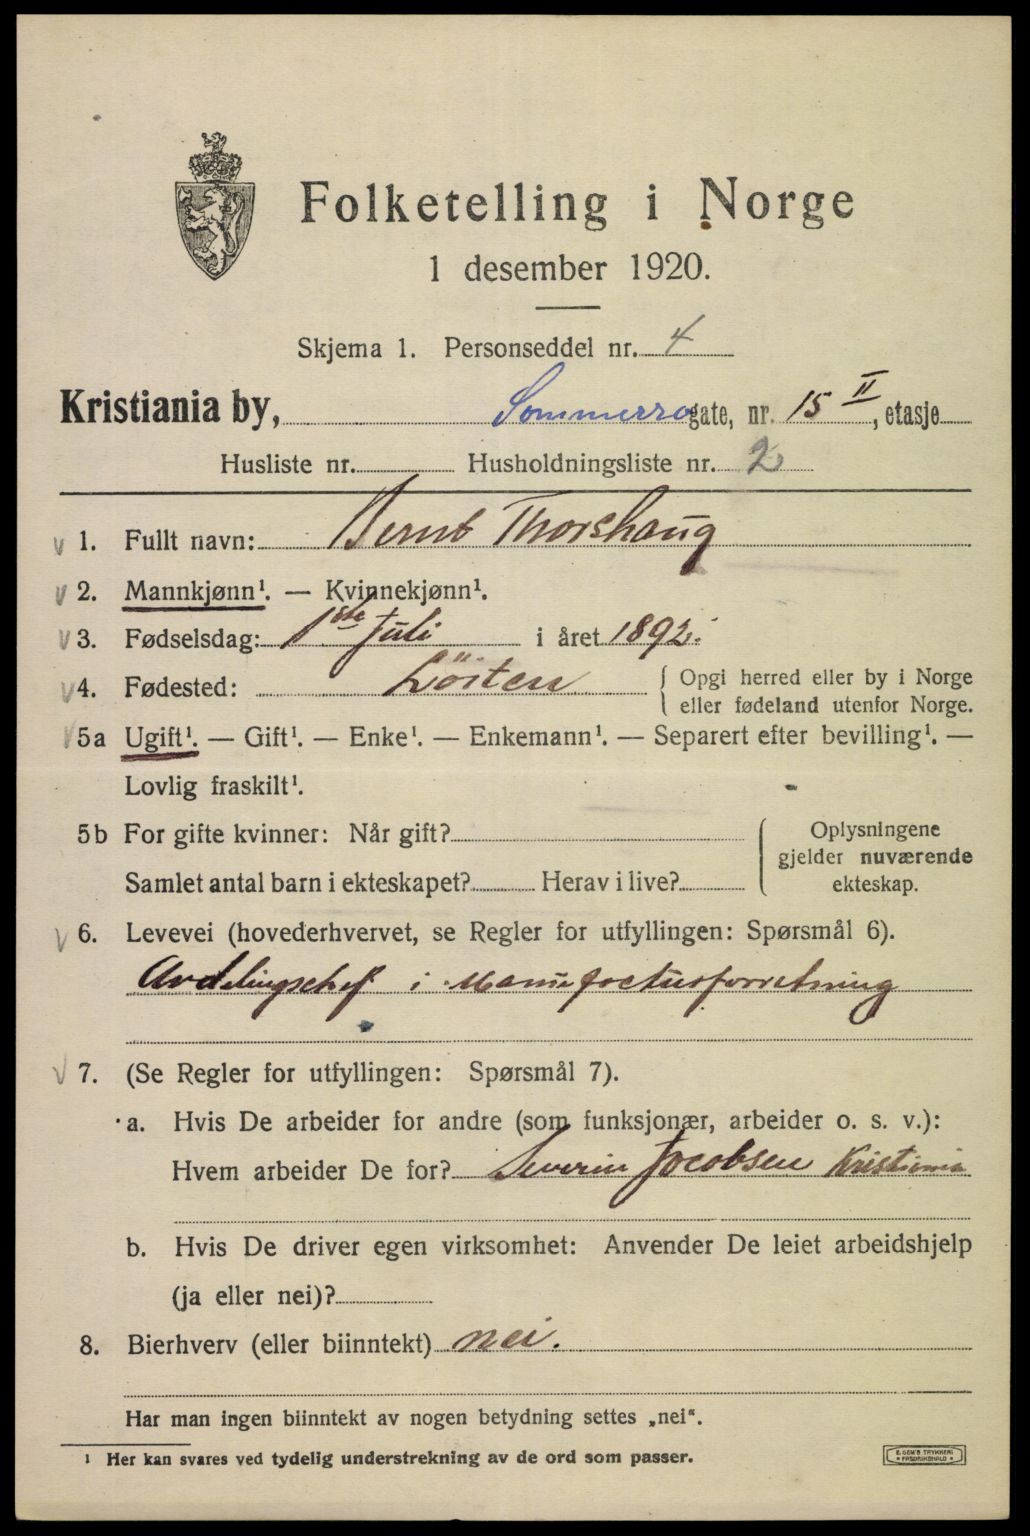 Folketelling i Norge
1 desember 1920.
Skjema 1. Personseddel nr. 4
Kristiania by, Sommerrogate, nr. 15 II, etasje
Husliste nr. Husholdningsliste nr. 2
v 1. Fullt navn: Bernt Thorshaug
v 2. Mannkjønn¹. — Kvinnekjønn¹.
v 3. Fødselsdag: 1ste Juli i året 1892.
v 4. Fødested: Löiten { Opgi herred eller by i Norge
eller fødeland utenfor Norge.
v 5a Ugift¹. — Gift¹. — Enke¹. — Enkemann¹. — Separert efter bevilling¹. —
Lovlig fraskilt¹.
5b For gifte kvinner: Når gift? { Oplysningene
gjelder nuværende
Samlet antal barn i ekteskapet? Herav i live? ekteskap.
v 6. Levevei (hovederhvervet, se Regler for utfyllingen: Spørsmål 6).
Avdelingschef i Manufacturforretning
v 7. (Se Regler for utfyllingen: Spørsmål 7).
a. Hvis De arbeider for andre (som funksjonær, arbeider o. s. v.):
Hvem arbeider De for? Severin Jacobsen Kristiania
b. Hvis De driver egen virksomhet: Anvender De leiet arbeidshjelp
(ja eller nei)?
8. Bierhverv (eller biinntekt) nei.
Har man ingen biinntekt av nogen betydning settes „nei“.
¹ Her kan svares ved tydelig understrekning av de ord som passer.
E. SEM'S TRYKKERI
FREDRIKSHALD